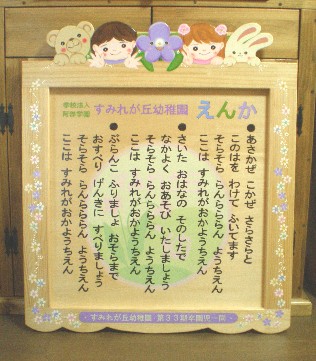 学校法人
すみれが丘幼稚園 えんか
●あさかぜ こかぜ さらさらと
このはを わけて ふいてます
そらそら らんらららん ようちえん
ここは すみれがおかようちえん
●さいた おはなの そのしたで
なかよく おあそび いたしましょう
そらそら らんらららん ようちえん
ここは すみれがおかようちえん
●ぶらんこ ふりましょ おそらまで
おすべり げんきに すべりましょう
そらそら らんらららん ようちえん
ここは すみれがおかようちえん
・すみれが丘幼稚園 第33回卒園児一同・